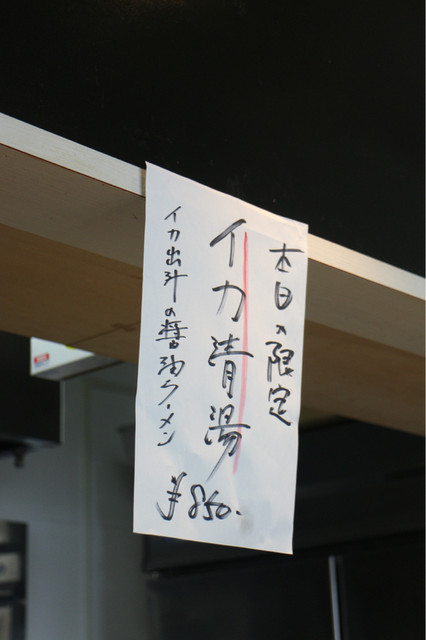 本日の限定
イカ清湯
イカ出汁の醤油ラーメン
¥850-